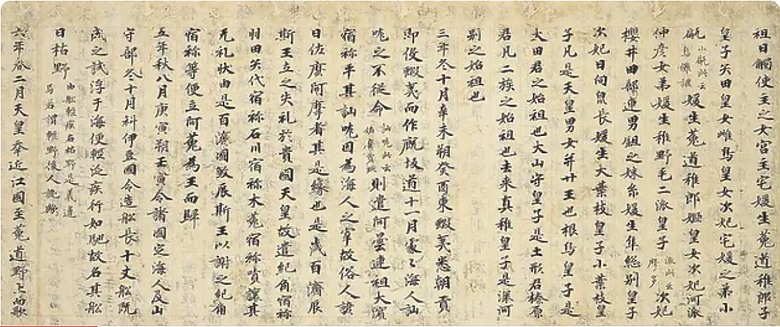 祖日觸使主之女宮主宅媛生菟道稚郎子
皇子矢田皇女雌鳥皇女次妃宅媛之弟小
甂小甂此云烏儺謎媛生菟道稚郎姬皇女次妃河派
仲彥女弟媛生稚野毛二派皇子派此云麼多次妃
櫻井田部連男鉏之妹糸媛生隼總別皇子
次妃日向泉長媛生大葉枝皇子小葉枝皇
子凡是天皇男女并廿王也根鳥皇子是
大田君之始祖也大山守皇子是土形君榛原
君凡二族之始祖也去來真稚皇子是深河
別之始祖也
三年冬十月辛未朔癸酉東蝦夷悉朝貢
即役蝦夷而作厩坂道十一月處々海人訕
哤之不從命訕哤此云佐麼賣玖則遣阿曇連祖大濱
宿祢平其訕哤因為海人之宰故俗人諺
曰佐麼阿摩者其是緣也是歲百濟辰
斯王立之失礼於貴國天皇故遣紀角宿祢
羽田矢代宿祢石川宿祢木菟宿祢嘖讓其
无礼狀由是百濟國殺辰斯王以謝之紀角
宿祢等便立阿菟為王而歸
五年秋八月庚寅朔壬寅令諸國定海人及山
守部冬十月科伊豆國令造船長十丈船既
成之試浮于海便輕泛疾行如馳故名其船
曰枯野由船輕疾名枯野是義違焉若謂輕野後人訛歟
六年春二月天皇幸近江國至菟道野上而歌